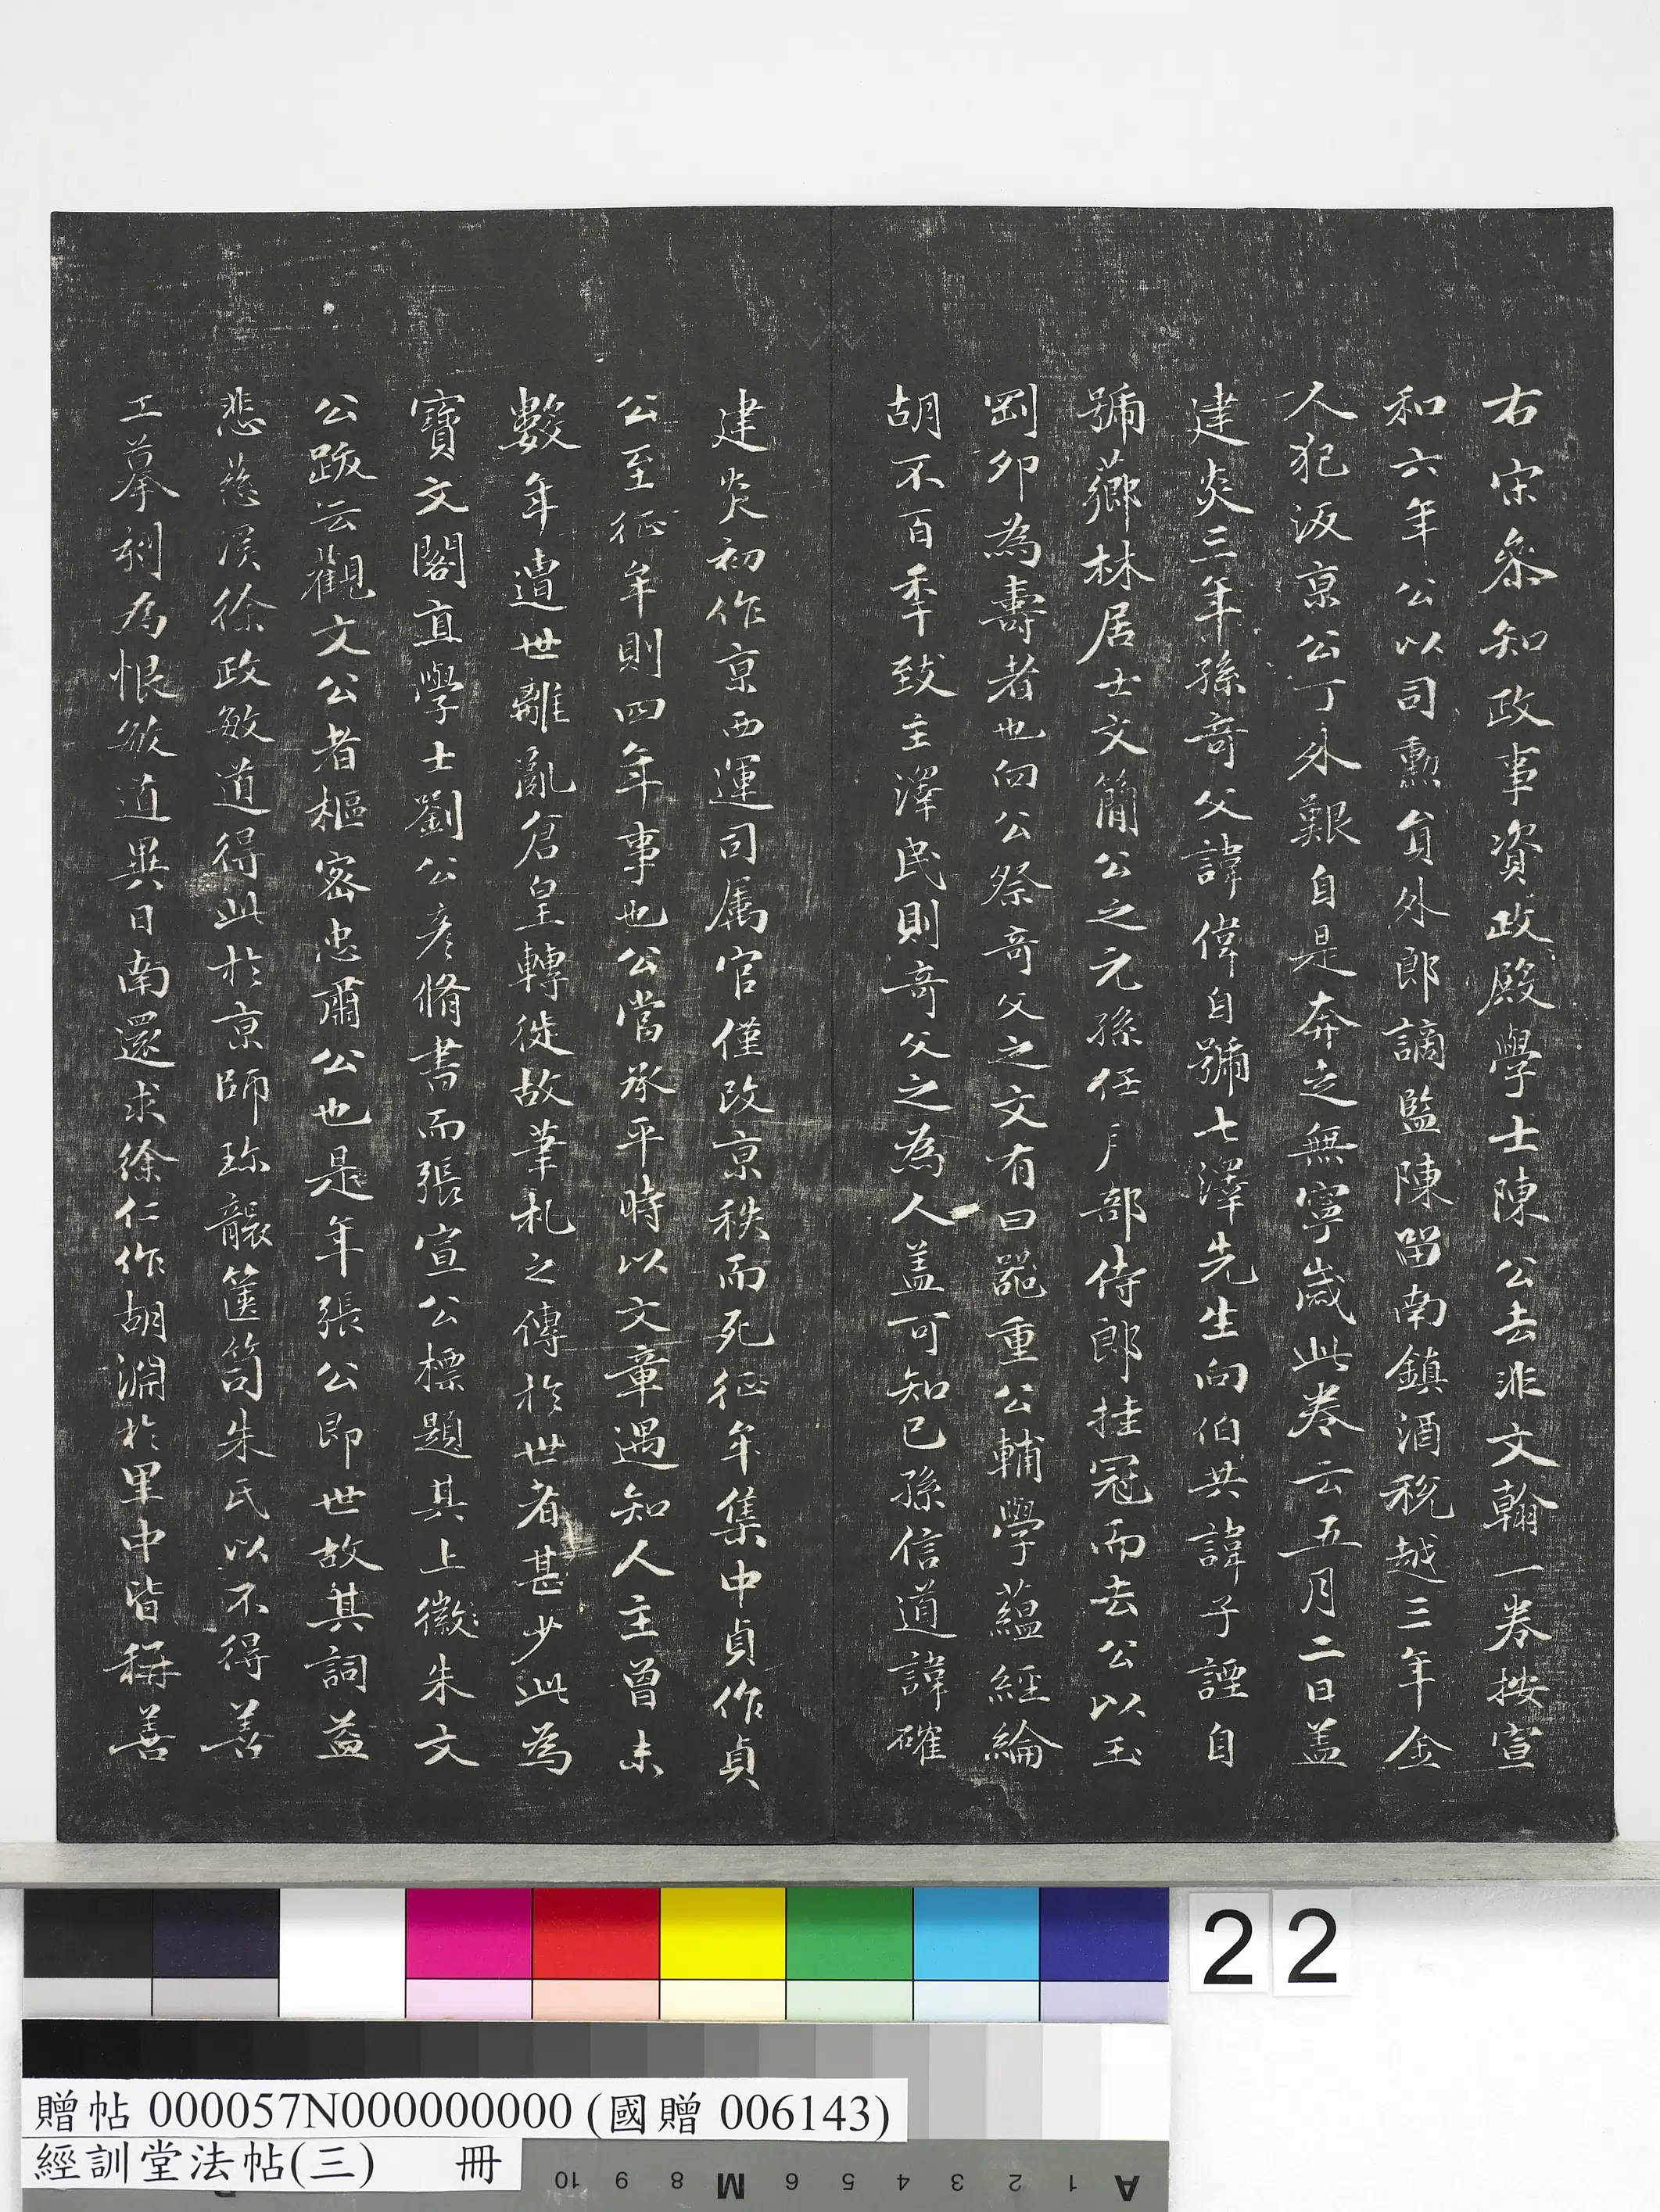 右宋叅知政事資政殿學士陳公去非文翰一卷按宣
和六年公以司勲負外郎謫監陳畱南鎮酒稅越三年金
人犯汳京公丁外艱自是奔走無寧歲此卷云五月二日盖
建炎三年孫竒父諱偉自號七澤先生向伯共諱子諲自
號薌林居士文簡公之元孫任戶部侍郎挂冠而去公以玉
剛卯為壽者也向公祭竒父之文有曰器重公輔學蘊經綸
胡不百年致主澤民則竒父之為人盖可知已孫信道諱確
建炎初作京西運司属官僅改京秩而死征牟集中貞作貞
公至征牟則四年事也公當承平時以文章遇知人主曾未
數年遭世離亂倉皇轉徙故筆札之傳於世者甚少此為
寶文閣直學士劉公彥脩書而張宣公標題其上徽朱文
公跋云觀文公者樞密忠肅公也是年張公即世故其詞益
悲慈溪徐政敏道得此於京師珎襲篋笥朱氏以不得善
工摹刻為恨敏道異日南還求徐仁作胡淵於里中皆稱善
22
贈帖 000057N000000000 (國贈 006143)
經訓堂法帖(三) 冊
10 9 8 M 6 5 4 3 2 1 A